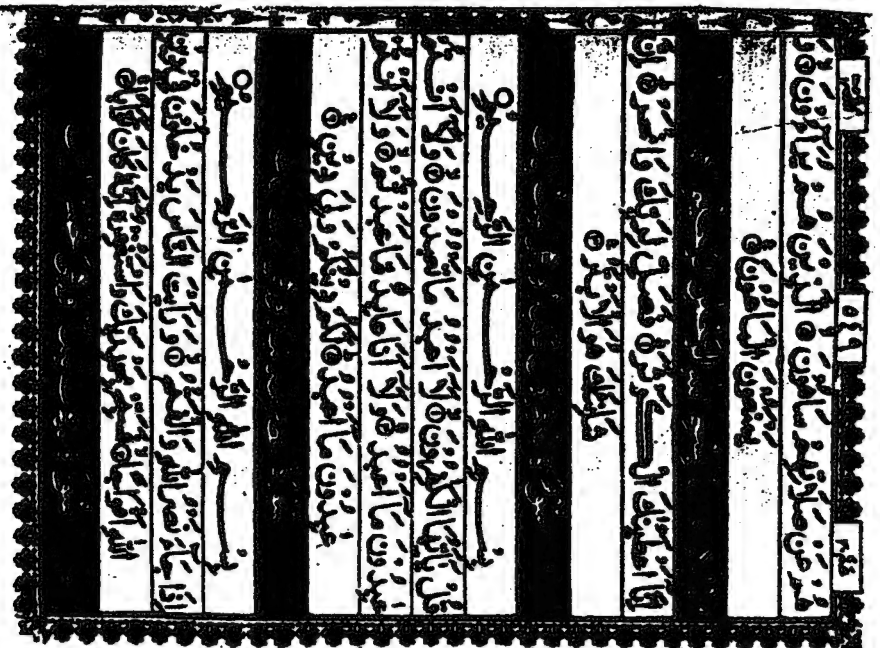 هُمْ عَنْ صَلَاتِهِمْ سَاهُونَ ۝ الَّذِينَ هُمْ يُرَاءُونَ ۝ وَ
يَمْنَعُونَ الْمَاعُونَ ۝
إِنَّا أَعْطَيْنَاكَ الْكَوْثَرَ ۝ فَصَلِّ لِرَبِّكَ وَانْحَرْ ۝ إِنَّ
شَانِئَكَ هُوَ الْأَبْتَرُ ۝
بِسْمِ اللَّهِ الرَّحْمَنِ الرَّحِيمِ
قُلْ يَاأَيُّهَا الْكَافِرُونَ ۝ لَا أَعْبُدُ مَا تَعْبُدُونَ ۝ وَلَا أَنْتُمْ
عَابِدُونَ مَا أَعْبُدُ ۝ وَلَا أَنَا عَابِدٌ مَا عَبَدْتُمْ ۝ وَلَا أَنْتُمْ
عَابِدُونَ مَا أَعْبُدُ ۝ لَكُمْ دِينُكُمْ وَلِيَ دِينِ ۝
بِسْمِ اللَّهِ الرَّحْمَنِ الرَّحِيمِ
إِذَا جَاءَ نَصْرُ اللَّهِ وَالْفَتْحُ ۝ وَرَأَيْتَ النَّاسَ يَدْخُلُونَ فِي دِينِ
اللَّهِ أَفْوَاجًا ۝ فَسَبِّحْ بِحَمْدِ رَبِّكَ وَاسْتَغْفِرْهُ إِنَّهُ كَانَ تَوَّابًا ۝